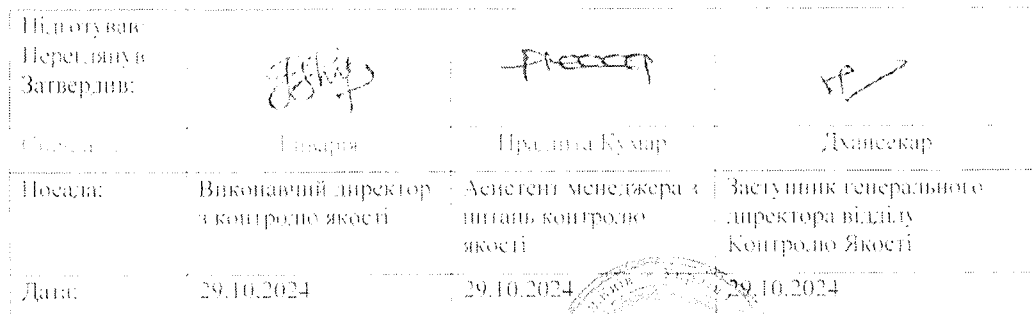 Підготував:
Переглянув
Затвердив:
Прадипа Кумар
Дхансекар
Посада:
Виконавчий директор
з контролю якості
Асистент менеджера з
питань контролю
якості
Заступник генерального
директора відділу
Контролю Якості
Дата:
29.10.2024
29.10.2024
29.10.2024